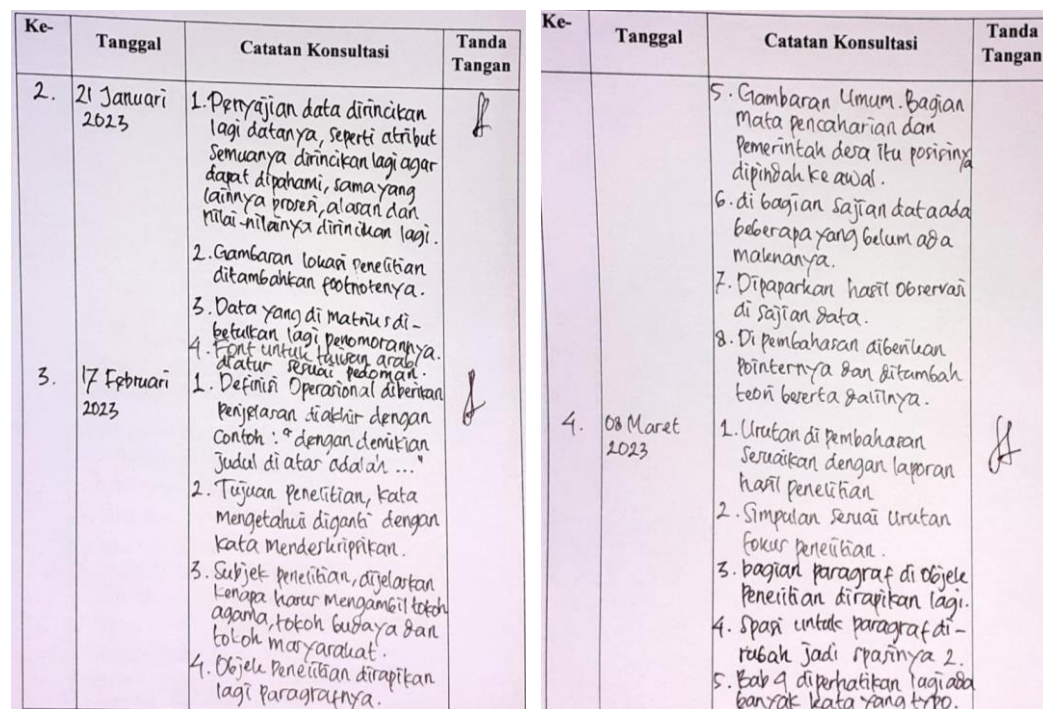 Ke-
Tanggal
Catatan Konsultasi
Tanda
Tangan
2.
21 Januari
2023
1. Penyajian data dirincikan
lagi datanya, seperti atribut
semuanya dirincikan lagi agar
dapat dipahami, sama yang
lainnya prosesi, alasan dan
nilai-nilainya dirincikan lagi.
2. Gambaran lokasi penelitian
ditambahkan footnotenya.
3. Data yang di matriks di-
betulkan lagi penomorannya.
4. Font untuk tulisan arab
diatur sesuai pedoman.
3.
17 Februari
2023
1. Definisi Operasional diberikan
penjelasan diakhir dengan
contoh : "dengan demikian
judul di atas adalah ..."
2. Tujuan penelitian, kata
mengetahui diganti dengan
kata mendeskripsikan.
3. Subjek penelitian, dijelaskan
kenapa harus mengambil tokoh
agama, tokoh budaya dan
tokoh masyarakat.
4. Objek penelitian dirapikan
lagi paragrafnya.
Ke-
Tanggal
Catatan Konsultasi
Tanda
Tangan
5. Gambaran Umum. Bagian
mata pencaharian dan
pemerintah desa itu posisinya
dipindah ke awal.
6. di bagian sajian data ada
beberapa yang belum ada
maknanya.
7. Dipaparkan hasil observasi
di sajian data.
8. Di pembahasan diberikan
pointernya dan ditambah
teori beserta dalilnya.
4.
08 Maret
2023
1. Urutan di pembahasan
sesuaikan dengan laporan
hasil penelitian
2. Simpulan sesuai urutan
fokus penelitian.
3. bagian paragraf di Objek
penelitian dirapikan lagi.
4. Spasi untuk paragraf di-
rubah jadi spasinya 2.
5. Bab 4 diperhatikan lagi ada
banyak kata yang typo.